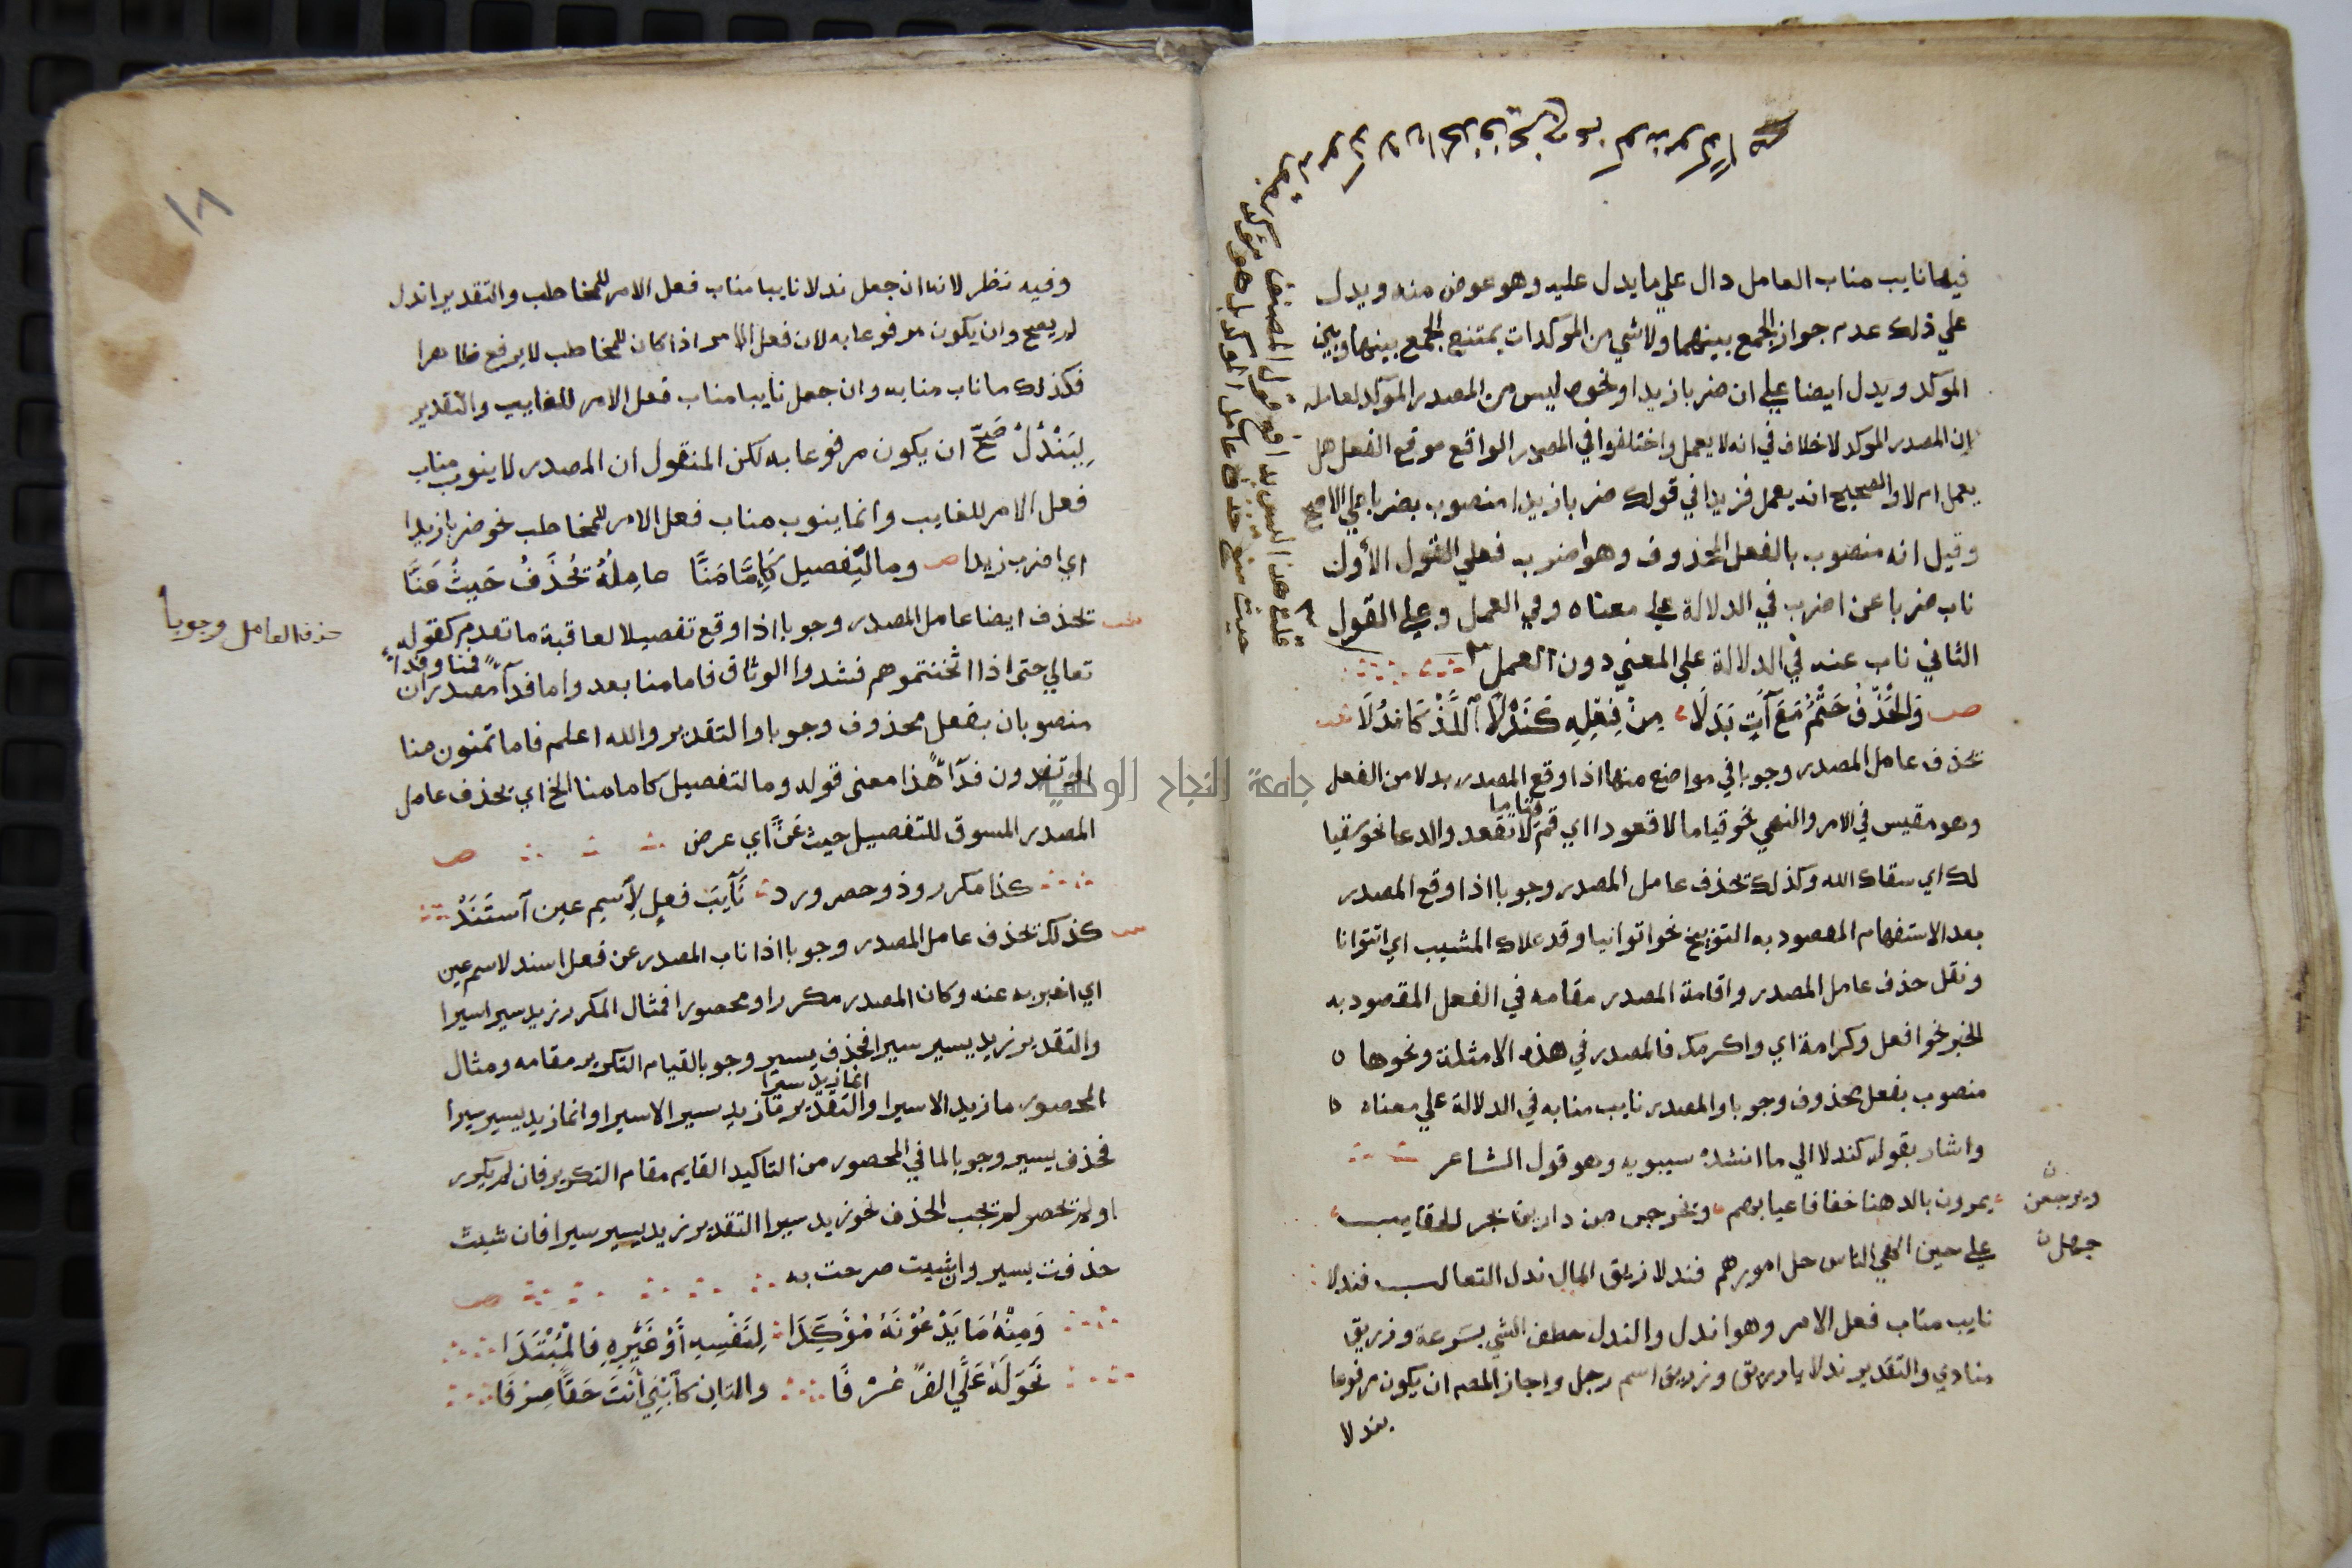 فيها نايب مناب العامل دال علي ما يدل عليه وهو عوض منه ويدل
علي ذلك عدم جواز الجمع بينهما ولا شي من الموكدات يمتنع الجمع بينها وبين
الموكد ويدل ايضا علي ان ضربا زيدا ونحوه ليس من المصدر الموكد لعامله
ان المصدر الموكد لا خلاف في انه لا يعمل واختلفوا في المصدر الواقع موقع الفعل هل
يعمل ام لا والصحيح انه يعمل فزيدا في قولك ضربا زيدا منصوب بضربا علي الاصح
وقيل انه منصوب بالفعل المحذوف وهو اضرب فعلي القول الأول
ناب ضربا عن اضرب في الدلالة علي معناه وفي العمل وعلي القول
الثاني ناب عنه في الدلالة علي المعني دون العمل
ص وَالحَذْفُ حَتْمٌ مَعَ آتٍ بَدَلَا مِنْ فِعْلِهِ كَنَدْلًا ٱللَّذْ كَانْدُلَا
تحذف عامل المصدر وجوبا في مواضع منها اذا وقع المصدر بدلا من الفعل
وهو مقيس في الامر والنهي نحو قياما لا قعودا اي قم قياما لا تقعد والدعا نحو سقيا
لك اي سقاك الله وكذلك تحذف عامل المصدر وجوبا اذا وقع المصدر
بعد الاستفهام المقصود به التوبيخ نحو اتوانيا وقد علاك المشيب اي اتتوانا
ونقل حذف عامل المصدر واقامة المصدر مقامه في الفعل المقصود به
الخبر نحو افعل وكرامة اي واكرمك فالمصدر في هذه الامثلة ونحوها
منصوب بفعل محذوف وجوبا والمصدر نايب منابه في الدلالة علي معناه
واشار بقوله كندلا الي ما انشده سيبويه وهو قول الشاعر
يمرون بالدهنا خفافا عيابهم ويخرجن من دارين بجر الحقايب
ويرجعن
علي حين الهي الناس جل امورهم فندلا زريق المال ندل الثعالب فندلا
جهل
نايب مناب فعل الامر وهو اندل والندل خطف الشي بسرعة وزريق
منادي والتقدير ندلا يا زريق وزريق اسم رجل واجاز المص ان يكون مرفوعا
بندلا
١٨
وفيه نظر لانه ان جعل ندلا نايبا مناب فعل الامر للمخاطب والتقدير اندل
لم يصح وان يكون مرفوعا به لان فعل الامر اذا كان للمخاطب لا يرفع ظاهرا
فكذلك ما ناب منابه وان جعل نايبا مناب فعل الامر للغايب والتقدير
لِيَنْدُلْ صَحّ ان يكون مرفوعا به لكن المنقول ان المصدر لا ينوب مناب
فعل الامر للغايب وانما ينوب مناب فعل الامر للمخاطب نحو ضربا زيدا
اي اضرب زيدا ص وما لتفصيل كَإِمَّا مَنَّا عامِلُهُ تُحْذَفُ حَيثُ عَنَّا
تحذف ايضا عامل المصدر وجوبا اذا وقع تفصيلا لعاقبة ما تقدم كقوله
حذف العامل وجوبا
تعالي حتى اذا اثخنتموهم فشدوا الوثاق فاما منا بعد واما فدآ فمنا وفدا مصدران
منصوبان بفعل محذوف وجوبا والتقدير والله اعلم فاما تمنون منا
او تفدون فدآ هذا معنى قوله وما لتفصيل كاما منا الخ اي تحذف عامل
المصدر المسوق للتفصيل حيث عَنَّ اي عرض ص
كذا مكرر وذو حصر ورد نَآيِبَ فعلٍ لِٱسمِ عين ٱستَنَدْ
كذلك تحذف عامل المصدر وجوبا اذا ناب المصدر عن فعل اسند لاسم عين
اي اخبر به عنه وكان المصدر مكررا او محصورا فمثال المكرر زيد سيرا سيرا
والتقدير زيد يسير سيرا فحذف يسير وجوبا لقيام التكرير مقامه ومثال
المحصور ما زيد الا سيرا انما زيد سيرا والتقدير ما زيد يسير الا سيرا وانما زيد يسير سيرا
فحذف يسير وجوبا لما في المحصور من التاكيد القايم مقام التكرير فان لم يكرر
او لم تحصر لم تجب الحذف نحو زيد سيرا التقدير زيد يسير سيرا فان شيت
حذفت يسير وان شيت صرحت به ص
وَمِنْهُ مَا يَدْعُوْنَهُ مُؤَكِّدَا لِنَفْسِهِ أَوْ غَيْرِهِ فَالْمُبْتَدَا
نَحْوُ لَهُ عَلَيَّ الفٌ عُرْفَا والثانِ كَٱبْنِي أَنْتَ حَقًّا صِرْفَا
جامعة النجاح الوطنية